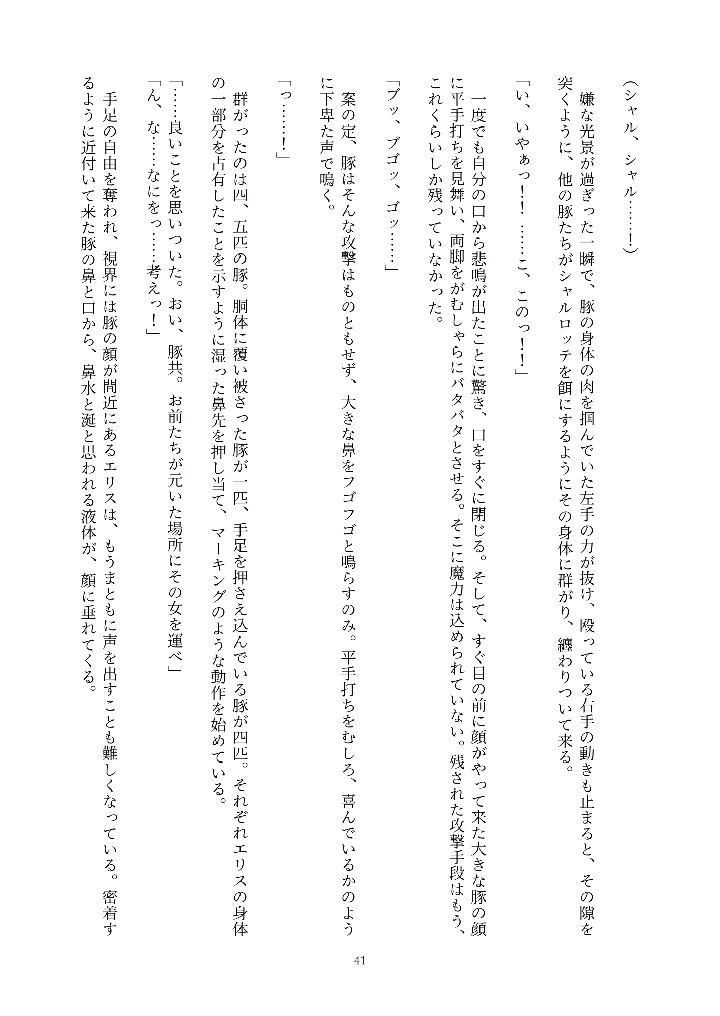 （シャル、シャル………！）
　嫌な光景が過ぎった一瞬で、豚の身体の肉を掴んでいた左手の力が抜け、殴っている右手の動きも止まると、その隙を
突くように、他の豚たちがシャルロッテを餌にするようにその身体に群がり、纏わりついて来る。
「い、いやぁっ！！ ……こ、このっ！！」
　一度でも自分の口から悲鳴が出たことに驚き、口をすぐに閉じる。そして、すぐ目の前に顔がやって来た大きな豚の顔
に平手打ちを見舞い、両脚をがむしゃらにバタバタとさせる。そこに魔力は込められていない。残された攻撃手段はもう、
これくらいしか残っていなかった。
「ブッ、ブゴッ、ゴッ……」
　案の定、豚はそんな攻撃はものともせず、大きな鼻をフゴフゴと鳴らすのみ。平手打ちをむしろ、喜んでいるかのよう
に下卑た声で鳴く。
「っ……！」
　群がったのは四、五匹の豚。胴体に覆い被さった豚が一匹、手足を押さえ込んでいる豚が四匹。それぞれエリスの身体
の一部分を占有したことを示すように湿った鼻先を押し当て、マーキングのような動作を始めている。
「……良いことを思いついた。おい、豚共。お前たちが元いた場所にその女を運べ」
「ん、な……なにをっ……考えっ！」
　手足の自由を奪われ、視界には豚の顔が間近にあるエリスは、もうまともに声を出すことも難しくなっている。密着す
るように近付いて来た豚の鼻と口から、鼻水と涎と思われる液体が、顔に垂れてくる。
41